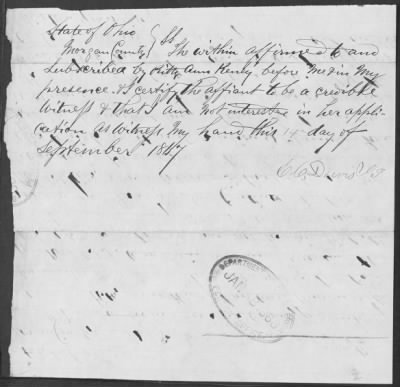 State of Ohio
Morgan County } SS The within affirmed to and
Subscribed by Kitty Ann Kenly, before me & in My
presence & I certify the affiant to be a credible
Witness & that I am not interested in her appli-
cation as Witness My hand this 14 day of
September 1847
DEPARTMENT
JAN